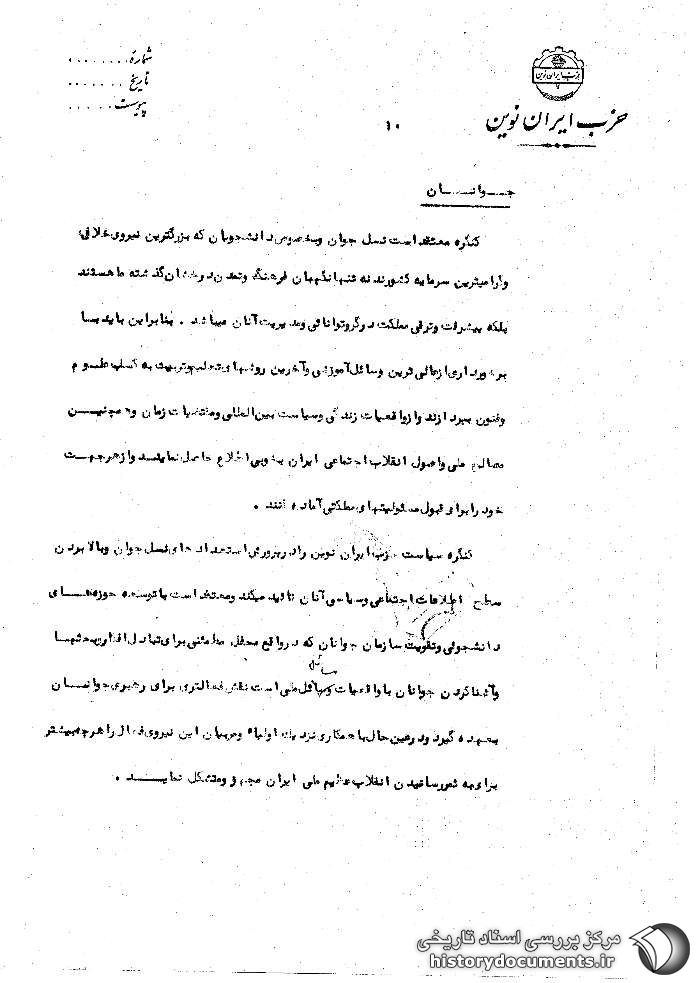 شماره........
تاریخ.......
پیوست......
حزب ایران نوین
حزب ایران نوین
۱۰
جـوانــان
کنگره معتقد است نسل جوان وبخصوص دانشجویان که بزرگترین نیروی خلاقی
وگرامیترین سرمایه کشورند نه تنها نگهبان فرهنگ وتمدن درخشان گذشته ما هستند
بلکه پیشرفت وترقی مملکت در گرو توانائی ومدیریت آنان میباشد . بنابراین باید بـا
برخورداری از عالی ترین وسائل آموزشی وآخرین روشهای تعلیم وتربیت به کسب علـوم
وفنون بپردازند وازواقعیات زندگی وسیاست بین المللی ومقتضیات زمان وهمچنیـن
مصالح ملی واصول انقلاب اجتماعی ایران بخوبی اطلاع حاصل نماینـد وازهرجهـت
خود را برای قبول مسئولیتهای مملکتی آماده کنند .
کنگره سیاست حزب ایران نوین را در پرورش استعداد های نسل جوان وبالا بردن
سطح اطلاعات اجتماعی وسیاسی آنان تائید میکند ومعتقد است با توسعه حوزه هـای
دانشجوئی وتقویت سازمان جوانان که در واقع محفل مطمئنی برای تبادل افکار
مسائل
وآشنا کردن جوانان با واقعیات ملی است نقش فعالتری برای رهبری جوانــان
بعهده گیرد ودرعین حال با همکاری نزدیک اولیاء ومربیان این نیروی فعال را هرچه بیشتر
برای به ثمر رسانیدن انقلاب عظیم ملی ایران مجهز ومتشکل نمایــد .
مرکز بررسی اسناد تاریخی
historydocuments.ir